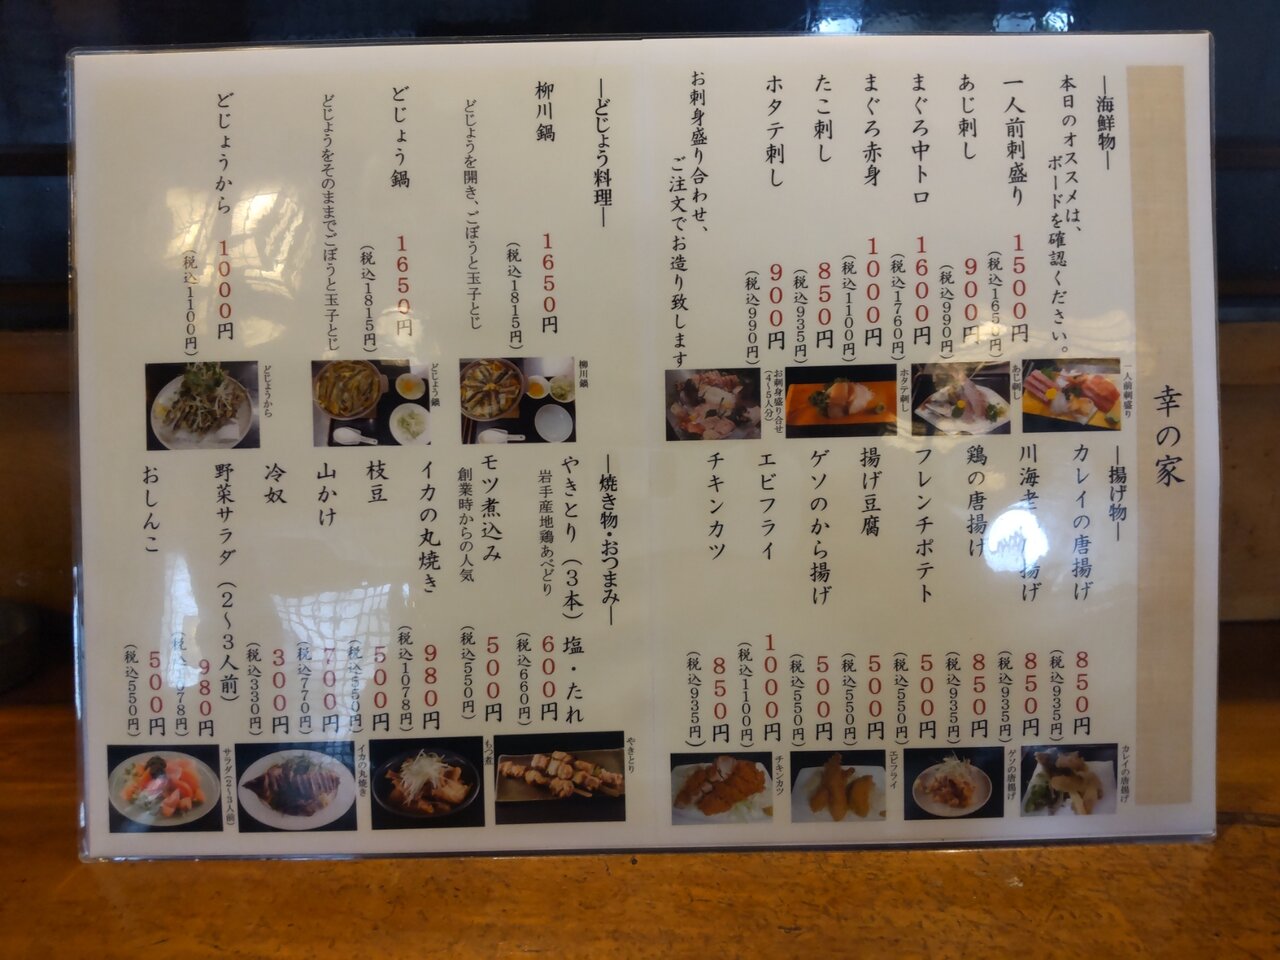 幸の家
―海鮮物―
本日のオススメは、
ボードを確認ください。
一人前刺盛り 1500円
(税込1650円)
あじ刺し 900円
(税込990円)
まぐろ中トロ 1600円
(税込1760円)
まぐろ赤身 1000円
(税込1100円)
たこ刺し 850円
(税込935円)
ホタテ刺し 900円
(税込990円)
お刺身盛り合わせ、
ご注文でお造り致します
一人前刺盛り
あじ刺し
ホタテ刺し
お刺身盛り合せ
(4〜5人分)
―どじょう料理―
柳川鍋 1650円
(税込1815円)
どじょうを開き、ごぼうと玉子とじ
どじょう鍋 1650円
(税込1815円)
どじょうをそのままでごぼうと玉子とじ
どじょうから 1000円
(税込1100円)
柳川鍋
どじょう鍋
どじょうから
―揚げ物―
カレイの唐揚げ 850円
(税込935円)
川海老 揚げ 850円
(税込935円)
鶏の唐揚げ 850円
(税込935円)
フレンチポテト 500円
(税込550円)
揚げ豆腐 500円
(税込550円)
ゲソのから揚げ 500円
(税込550円)
エビフライ 1000円
(税込1100円)
チキンカツ 850円
(税込935円)
カレイの唐揚げ
ゲソの唐揚げ
エビフライ
チキンカツ
―焼き物・おつまみ―
やきとり(3本)塩・たれ 600円
岩手産地鶏あべどり (税込660円)
モツ煮込み 500円
創業時からの人気 (税込550円)
イカの丸焼き 980円
(税込1078円)
枝豆 500円
(税込550円)
山かけ 700円
(税込770円)
冷奴 300円
(税込330円)
野菜サラダ(2〜3人前) 980円
(税込1078円)
おしんこ 500円
(税込550円)
やきとり
もつ煮
イカの丸焼き
サラダ(2〜3人前)